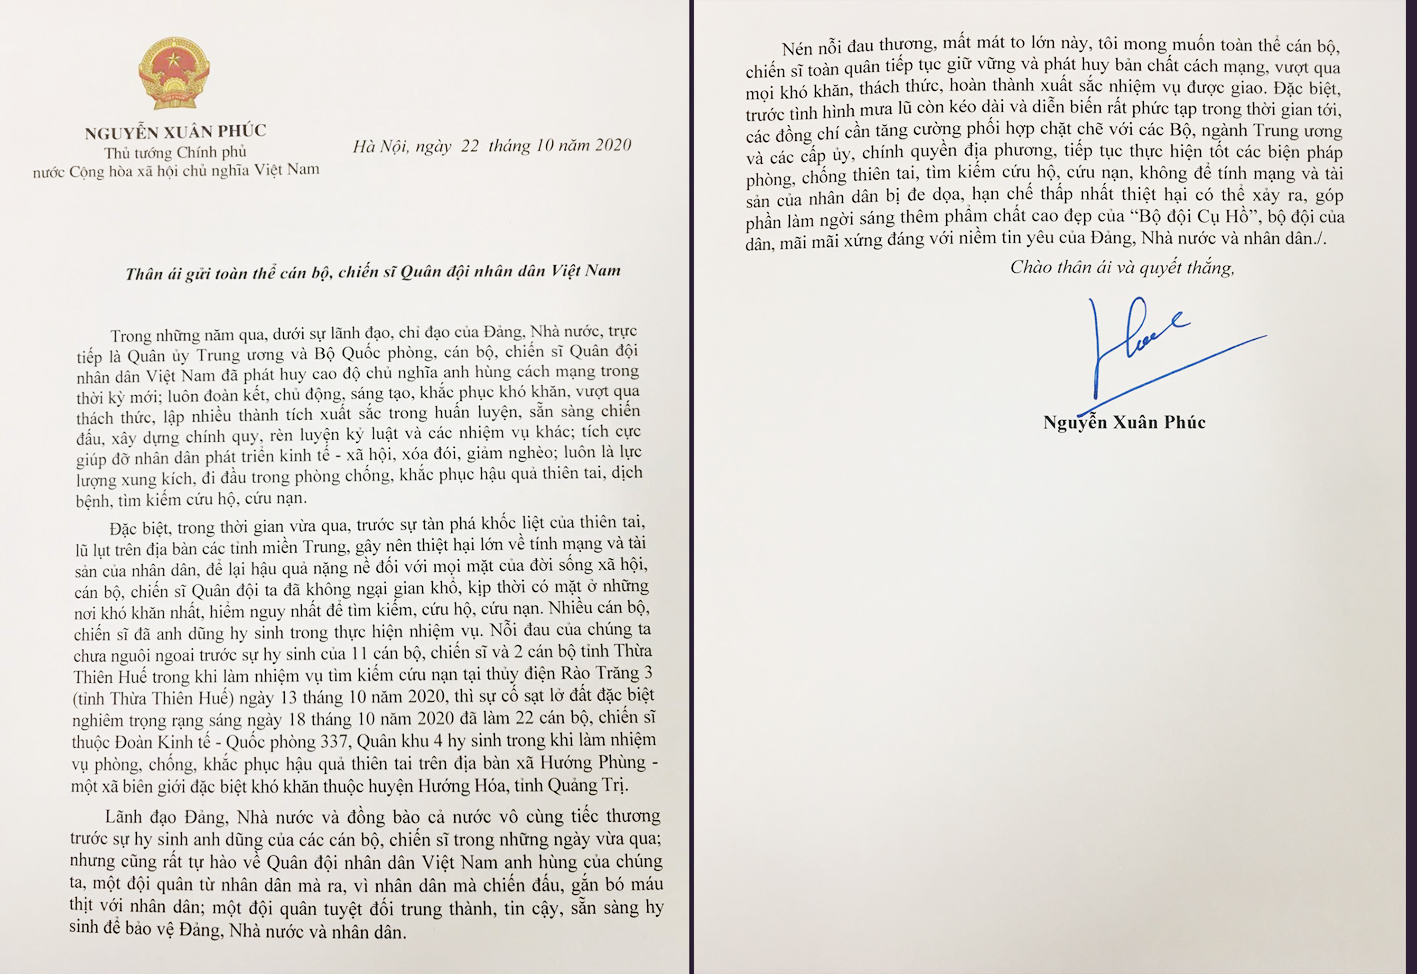 NGUYỄN XUÂN PHÚC
Thủ tướng Chính phủ
nước Cộng hòa xã hội chủ nghĩa Việt Nam
Hà Nội, ngày 22 tháng 10 năm 2020
Thân ái gửi toàn thể cán bộ, chiến sĩ Quân đội nhân dân Việt Nam
Trong những năm qua, dưới sự lãnh đạo, chỉ đạo của Đảng, Nhà nước, trực
tiếp là Quân ủy Trung ương và Bộ Quốc phòng, cán bộ, chiến sĩ Quân đội
nhân dân Việt Nam đã phát huy cao độ chủ nghĩa anh hùng cách mạng trong
thời kỳ mới; luôn đoàn kết, chủ động, sáng tạo, khắc phục khó khăn, vượt qua
thách thức, lập nhiều thành tích xuất sắc trong huấn luyện, sẵn sàng chiến
đấu, xây dựng chính quy, rèn luyện kỷ luật và các nhiệm vụ khác; tích cực
giúp đỡ nhân dân phát triển kinh tế - xã hội, xóa đói, giảm nghèo; luôn là lực
lượng xung kích, đi đầu trong phòng chống, khắc phục hậu quả thiên tai, dịch
bệnh, tìm kiếm cứu hộ, cứu nạn.
Đặc biệt, trong thời gian vừa qua, trước sự tàn phá khốc liệt của thiên tai,
lũ lụt trên địa bàn các tỉnh miền Trung, gây nên thiệt hại lớn về tính mạng và tài
sản của nhân dân, để lại hậu quả nặng nề đối với mọi mặt của đời sống xã hội,
cán bộ, chiến sĩ Quân đội ta đã không ngại gian khổ, kịp thời có mặt ở những
nơi khó khăn nhất, hiểm nguy nhất để tìm kiếm, cứu hộ, cứu nạn. Nhiều cán bộ,
chiến sĩ đã anh dũng hy sinh trong thực hiện nhiệm vụ. Nỗi đau của chúng ta
chưa nguôi ngoai trước sự hy sinh của 11 cán bộ, chiến sĩ và 2 cán bộ tỉnh Thừa
Thiên Huế trong khi làm nhiệm vụ tìm kiếm cứu nạn tại thủy điện Rào Trăng 3
(tỉnh Thừa Thiên Huế) ngày 13 tháng 10 năm 2020, thì sự cố sạt lở đất đặc biệt
nghiêm trọng rạng sáng ngày 18 tháng 10 năm 2020 đã làm 22 cán bộ, chiến sĩ
thuộc Đoàn Kinh tế - Quốc phòng 337, Quân khu 4 hy sinh trong khi làm nhiệm
vụ phòng, chống, khắc phục hậu quả thiên tai trên địa bàn xã Hướng Phùng -
một xã biên giới đặc biệt khó khăn thuộc huyện Hướng Hóa, tỉnh Quảng Trị.
Lãnh đạo Đảng, Nhà nước và đồng bào cả nước vô cùng tiếc thương
trước sự hy sinh anh dũng của các cán bộ, chiến sĩ trong những ngày vừa qua;
nhưng cũng rất tự hào về Quân đội nhân dân Việt Nam anh hùng của chúng
ta, một đội quân từ nhân dân mà ra, vì nhân dân mà chiến đấu, gắn bó máu
thịt với nhân dân; một đội quân tuyệt đối trung thành, tin cậy, sẵn sàng hy
sinh để bảo vệ Đảng, Nhà nước và nhân dân.
Nén nỗi đau thương, mất mát to lớn này, tôi mong muốn toàn thể cán bộ,
chiến sĩ toàn quân tiếp tục giữ vững và phát huy bản chất cách mạng, vượt qua
mọi khó khăn, thách thức, hoàn thành xuất sắc nhiệm vụ được giao. Đặc biệt,
trước tình hình mưa lũ còn kéo dài và diễn biến rất phức tạp trong thời gian tới,
các đồng chí cần tăng cường phối hợp chặt chẽ với các Bộ, ngành Trung ương
và các cấp ủy, chính quyền địa phương, tiếp tục thực hiện tốt các biện pháp
phòng, chống thiên tai, tìm kiếm cứu hộ, cứu nạn, không để tính mạng và tài
sản của nhân dân bị đe dọa, hạn chế thấp nhất thiệt hại có thể xảy ra, góp
phần làm ngời sáng thêm phẩm chất cao đẹp của “Bộ đội Cụ Hồ”, bộ đội của
dân, mãi mãi xứng đáng với niềm tin yêu của Đảng, Nhà nước và nhân dân./.
Chào thân ái và quyết thắng,
Nguyễn Xuân Phúc